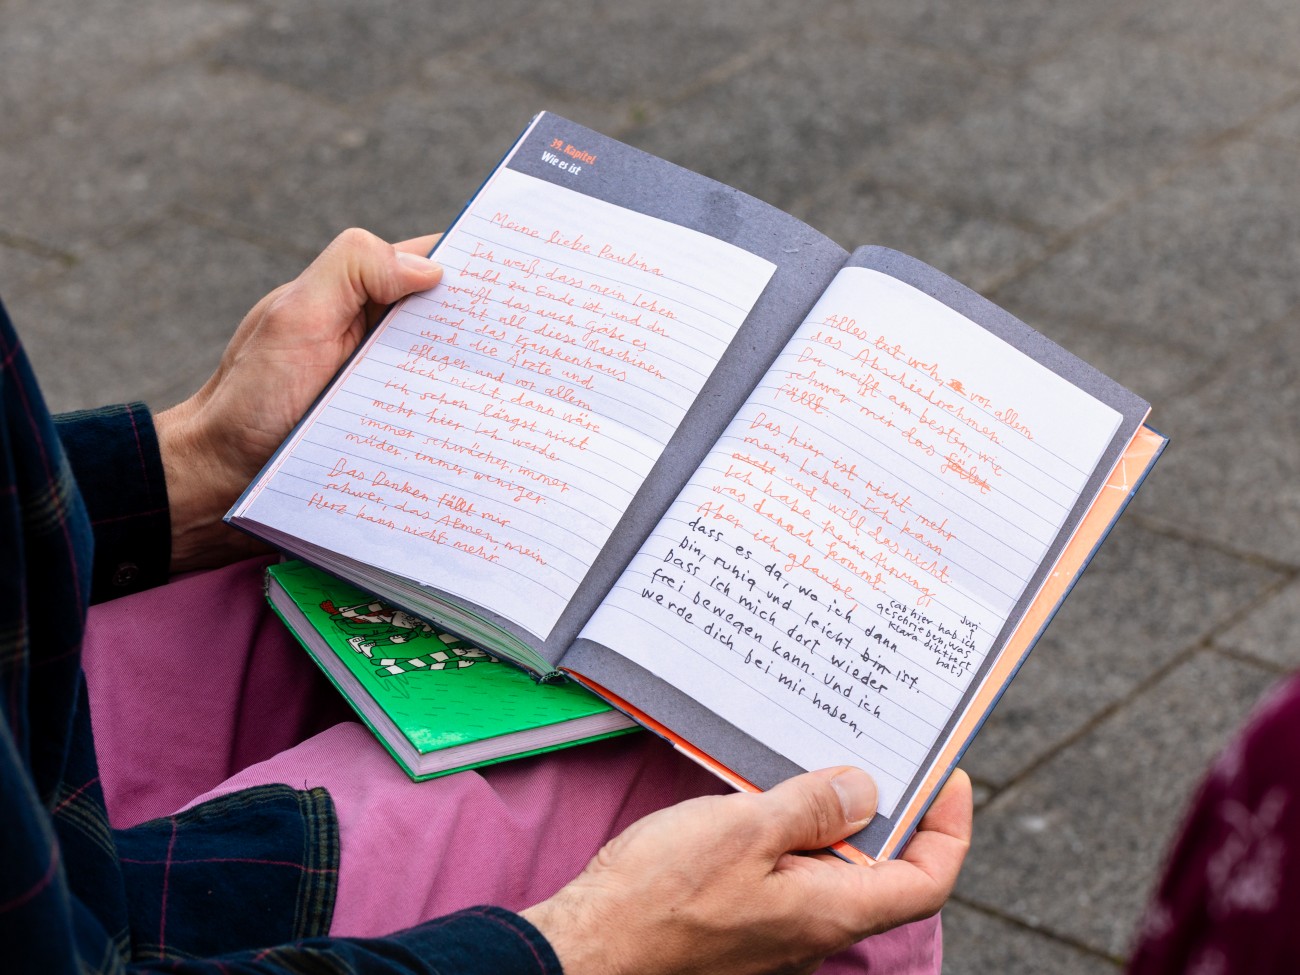 39. Kapitel
Wie es ist
Meine liebe Paulina
Ich weiß, dass mein Leben
bald zu Ende ist, und du
weißt das auch. Gäbe es
nicht all diese Maschinen
und das Krankenhaus
und die Ärzte und
Pfleger und vor allem
dich nicht, dann wäre
ich schon längst nicht
mehr hier. Ich werde
immer schwächer, immer
müder, immer weniger.
Das Denken fällt mir
schwer, das Atmen. Mein
Herz kann nicht mehr.
Alles tut weh, vor allem
das Abschiednehmen.
Du weißt am besten, wie
schwer mir das
fällt.
Das hier ist nicht mehr
mein Leben. Ich kann
und will das nicht.
Ich habe keine Ahnung,
was danach kommt.
Aber ich glaube,
dass es da, wo ich dann
bin, ruhig und leicht bin ist.
Dass ich mich dort wieder
frei bewegen kann. Und ich
werde dich bei mir haben,
(ab hier hab ich, Juri,
geschrieben, was
Klara diktiert
hat.)